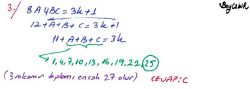 3-) 8A4BC = 3k+1
12+A+B+C = 3k+1
11+A+B+C = 3k
1,4,7,10,13,16,19,22,25
(3 rakamın toplamı en çok 27 olur) CEVAP: C